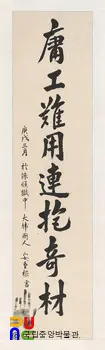 庸工難用連抱奇材
庚戌三月 於旅順獄中 大韓國人 安重根 書
국립중앙박물관